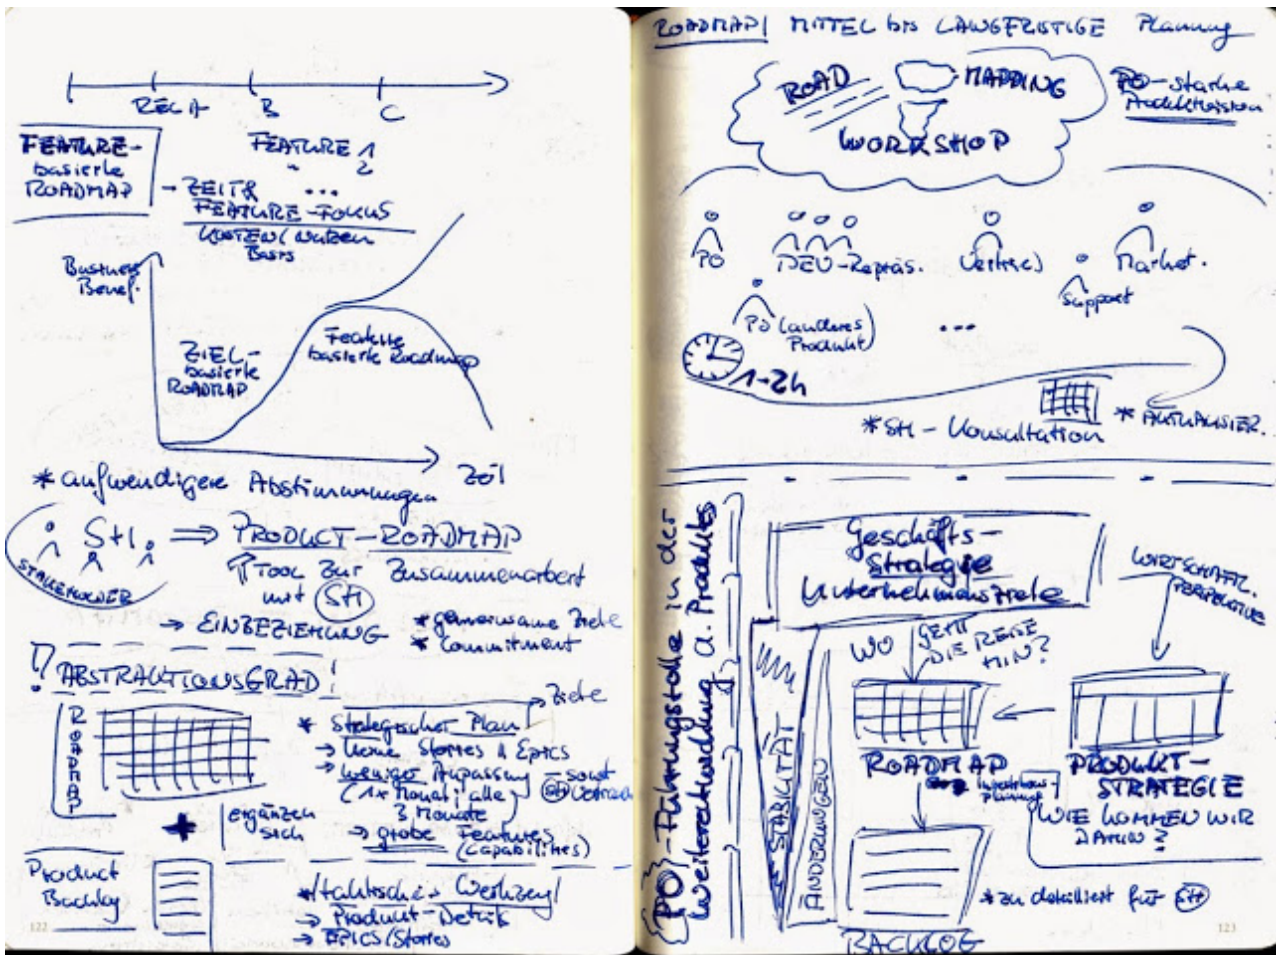 REL A
B
C
FEATURE-
basierte
ROADMAP
FEATURE 1
" 2
...
→ ZEIT &
FEATURE-FOKUS
KOSTEN/NUTZEN
Basis
Business
Benef.
ZIEL-
basierte
ROADMAP
Feature
basierte Roadmap
Zeit
* aufwendigere Abstimmungen
SH
STAKEHOLDER
⇒ PRODUCT-ROADMAP
TOOL zur Zusammenarbeit
mit SH
→ EINBEZIEHUNG
* gemeinsame Ziele
* Commitment
! ABSTRAKTIONSGRAD!
ROADMAP
→ Ziele
* Strategischer Plan
→ keine Stories & Epics
→ weniger Anpassung
(1x Monat; alle
3 Monate
→ sonst
→ grobe Features
(Capabilities)
+
ergänzen
sich
Product
Backlog
* taktisches Werkzeug
→ Produkt-Details
→ EPICS/Stories
122
ROADMAP| MITTEL bis LANGFRISTIGE Planung
ROAD MAPPING
WORKSHOP
PO-starke
Produktvision
PO
DEV-Repräs.
Vertrieb
Market.
Support
PO (anderes
Produkt)
...
1-2h
* SH-Konsultation
* AKTUALISIER.
PO-Führungsrolle in der
Weiterentwicklung d. Produktes
Geschäfts-
Strategie
Unternehmensziele
WIRTSCHAFTL.
PERSPEKTIVE
STABILITÄT
ÄNDERUNGEN
WO GEHT
DIE REISE
HIN?
ROADMAP
PRODUKT-
STRATEGIE
WIE KOMMEN WIR
DAHIN?
BACKLOG
* zu detailliert für SH
123